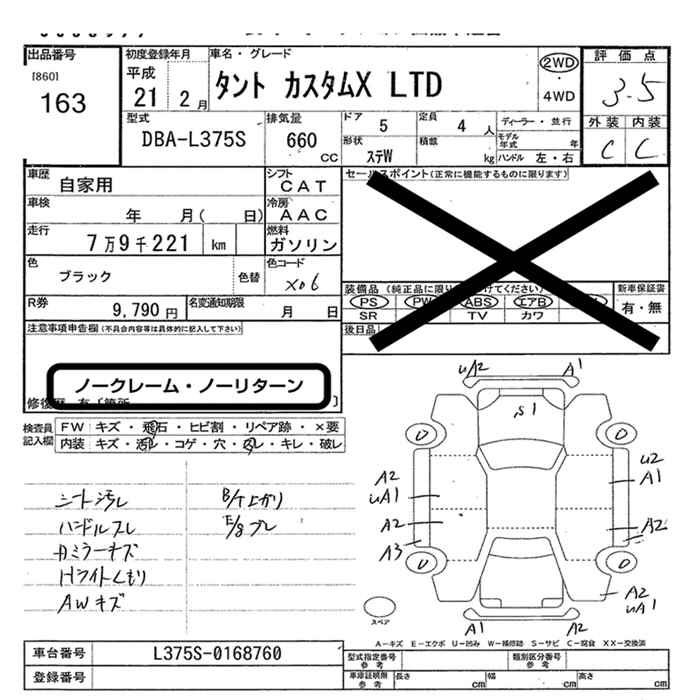 出品番号 初度登録年月 車名・グレード 評価点
[860] 平成 2WD 3.5
163 21 2月 タント カスタムX LTD 4WD
外装 内装
型式 排気量 ドア 定員 ディーラー・並行 C C
DBA-L375S 660 CC 5 4人 モデル年式 年
形状 積載 ステW kg ハンドル 左・右
車歴 自家用 シフト CAT セールスポイント(正常に機能するものに限ります)
車検 年 月( 日) 冷房 AAC
走行 7万9千221 km 燃料 ガソリン
色 ブラック 色替 色コード X06
装備品(純正品に限り けてください) 新車保証書
PS PW ABS エアB 有・無
SR TV カワ
R券 9,790円 名変通知期限 月 日
後日品
注意事項申告欄(不具合内容等は具体的に記入して下さい)
ノークレーム・ノーリターン
修復歴 有〔箇所 〕
検査員記入欄 FW キズ・飛石・ヒビ割・リペア跡・×要
内装 キズ・汚レ・コゲ・穴・スレ・キレ・破レ
シート汚レ B/T上がり
ハンドルスレ E/gブレ
Rミラーキズ
Hライトくもり
AWキズ
uA2 A1
S1
D D
A2 u2
uA1 A1
A2 A2
A3
D D
A2
uA1
スペア
A1 A2
A-キズ E-エクボ U-凹み W-補修跡 S-サビ C-腐食 XX-交換済
車台番号 L375S-0168760 型式指定番号 参考 類別区分番号 参考
登録番号 車庫証明無 参考 長さ cm 幅 cm 高さ cm